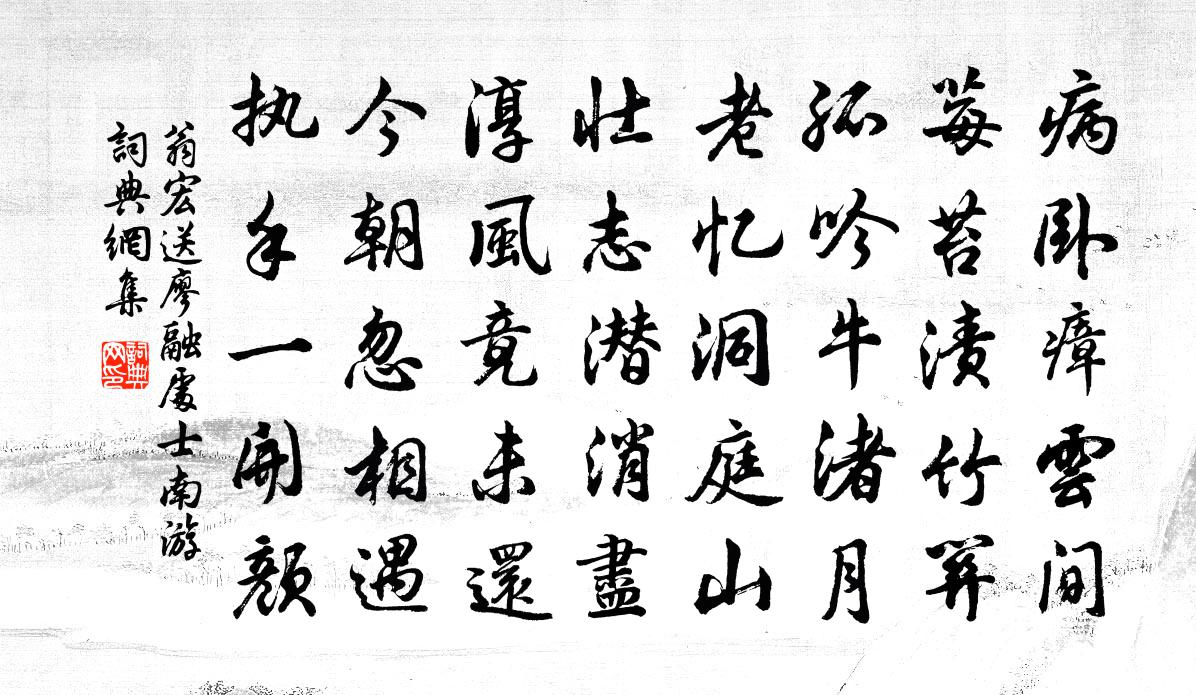 病卧瘴雲間
莓苔漬竹關
孤吟牛渚月
老忆洞庭山
壮志潜消盡
淳風竟未還
今朝忽相遇
执手一開顏
翁宏送廖融處士南游
詞典網集
詞典网印